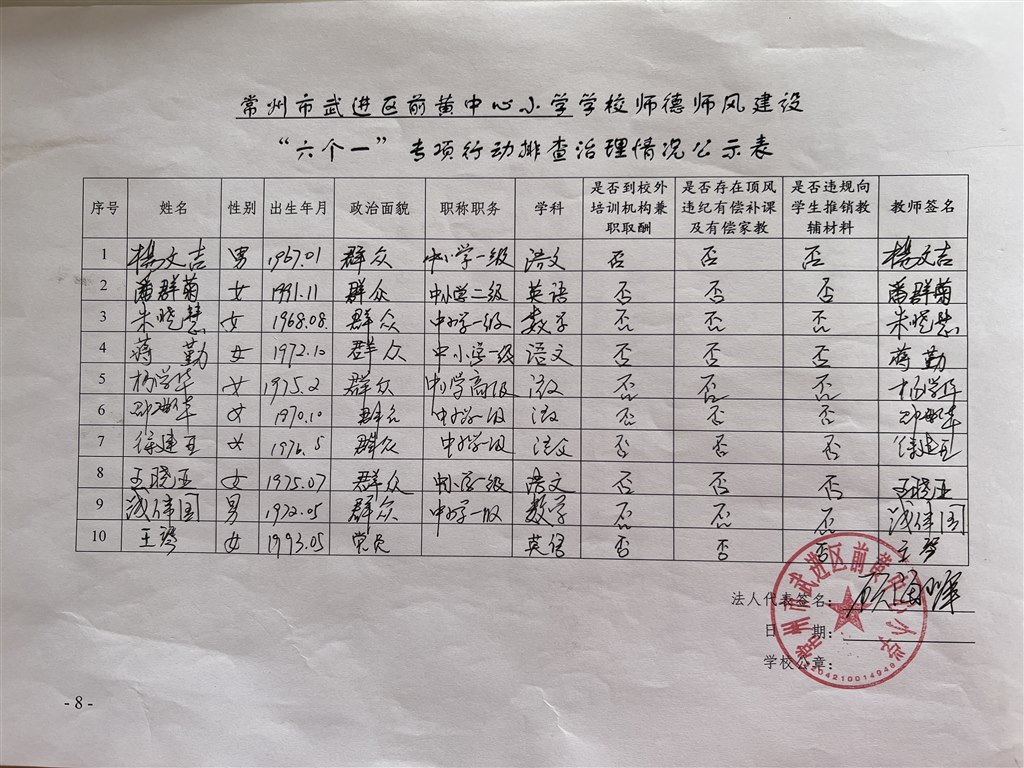 常州市武进区前黄中心小学学校师德师风建设
“六个一”专项行动排查治理情况公示表
序号 姓名 性别 出生年月 政治面貌 职称职务 学科 是否到校外培训机构兼职取酬 是否存在顶风违纪有偿补课及有偿家教 是否违规向学生推销教辅材料 教师签名
1 杨文吉 男 1967.01 群众 中小学一级 语文 否 否 否 杨文吉
2 潘群菊 女 1991.11 群众 中小学二级 英语 否 否 否 潘群菊
3 朱晓慧 女 1968.08. 群众 中小学一级 数学 否 否 否 朱晓慧
4 蒋勤 女 1972.10 群众 中小学一级 语文 否 否 否 蒋勤
5 杨学华 女 1975.2 群众 中小学高级 语文 否 否 否 杨学华
6 女 1970.10 群众 中小学一级 语文 否 否 否
7 徐建亚 女 1976.5 群众 中小学一级 语文 否 否 否 徐建亚
8 王晓亚 女 1975.07 群众 中小学一级 语文 否 否 否 王晓亚
9 伟国 男 1972.05 群众 中小学一级 数学 否 否 否 伟国
10 王琴 女 1993.05 党员 英语 否 否 否 王琴
法人代表签名：
日期：
学校公章：
常州市武进区前黄中心小学
3204210014948
- 8 -